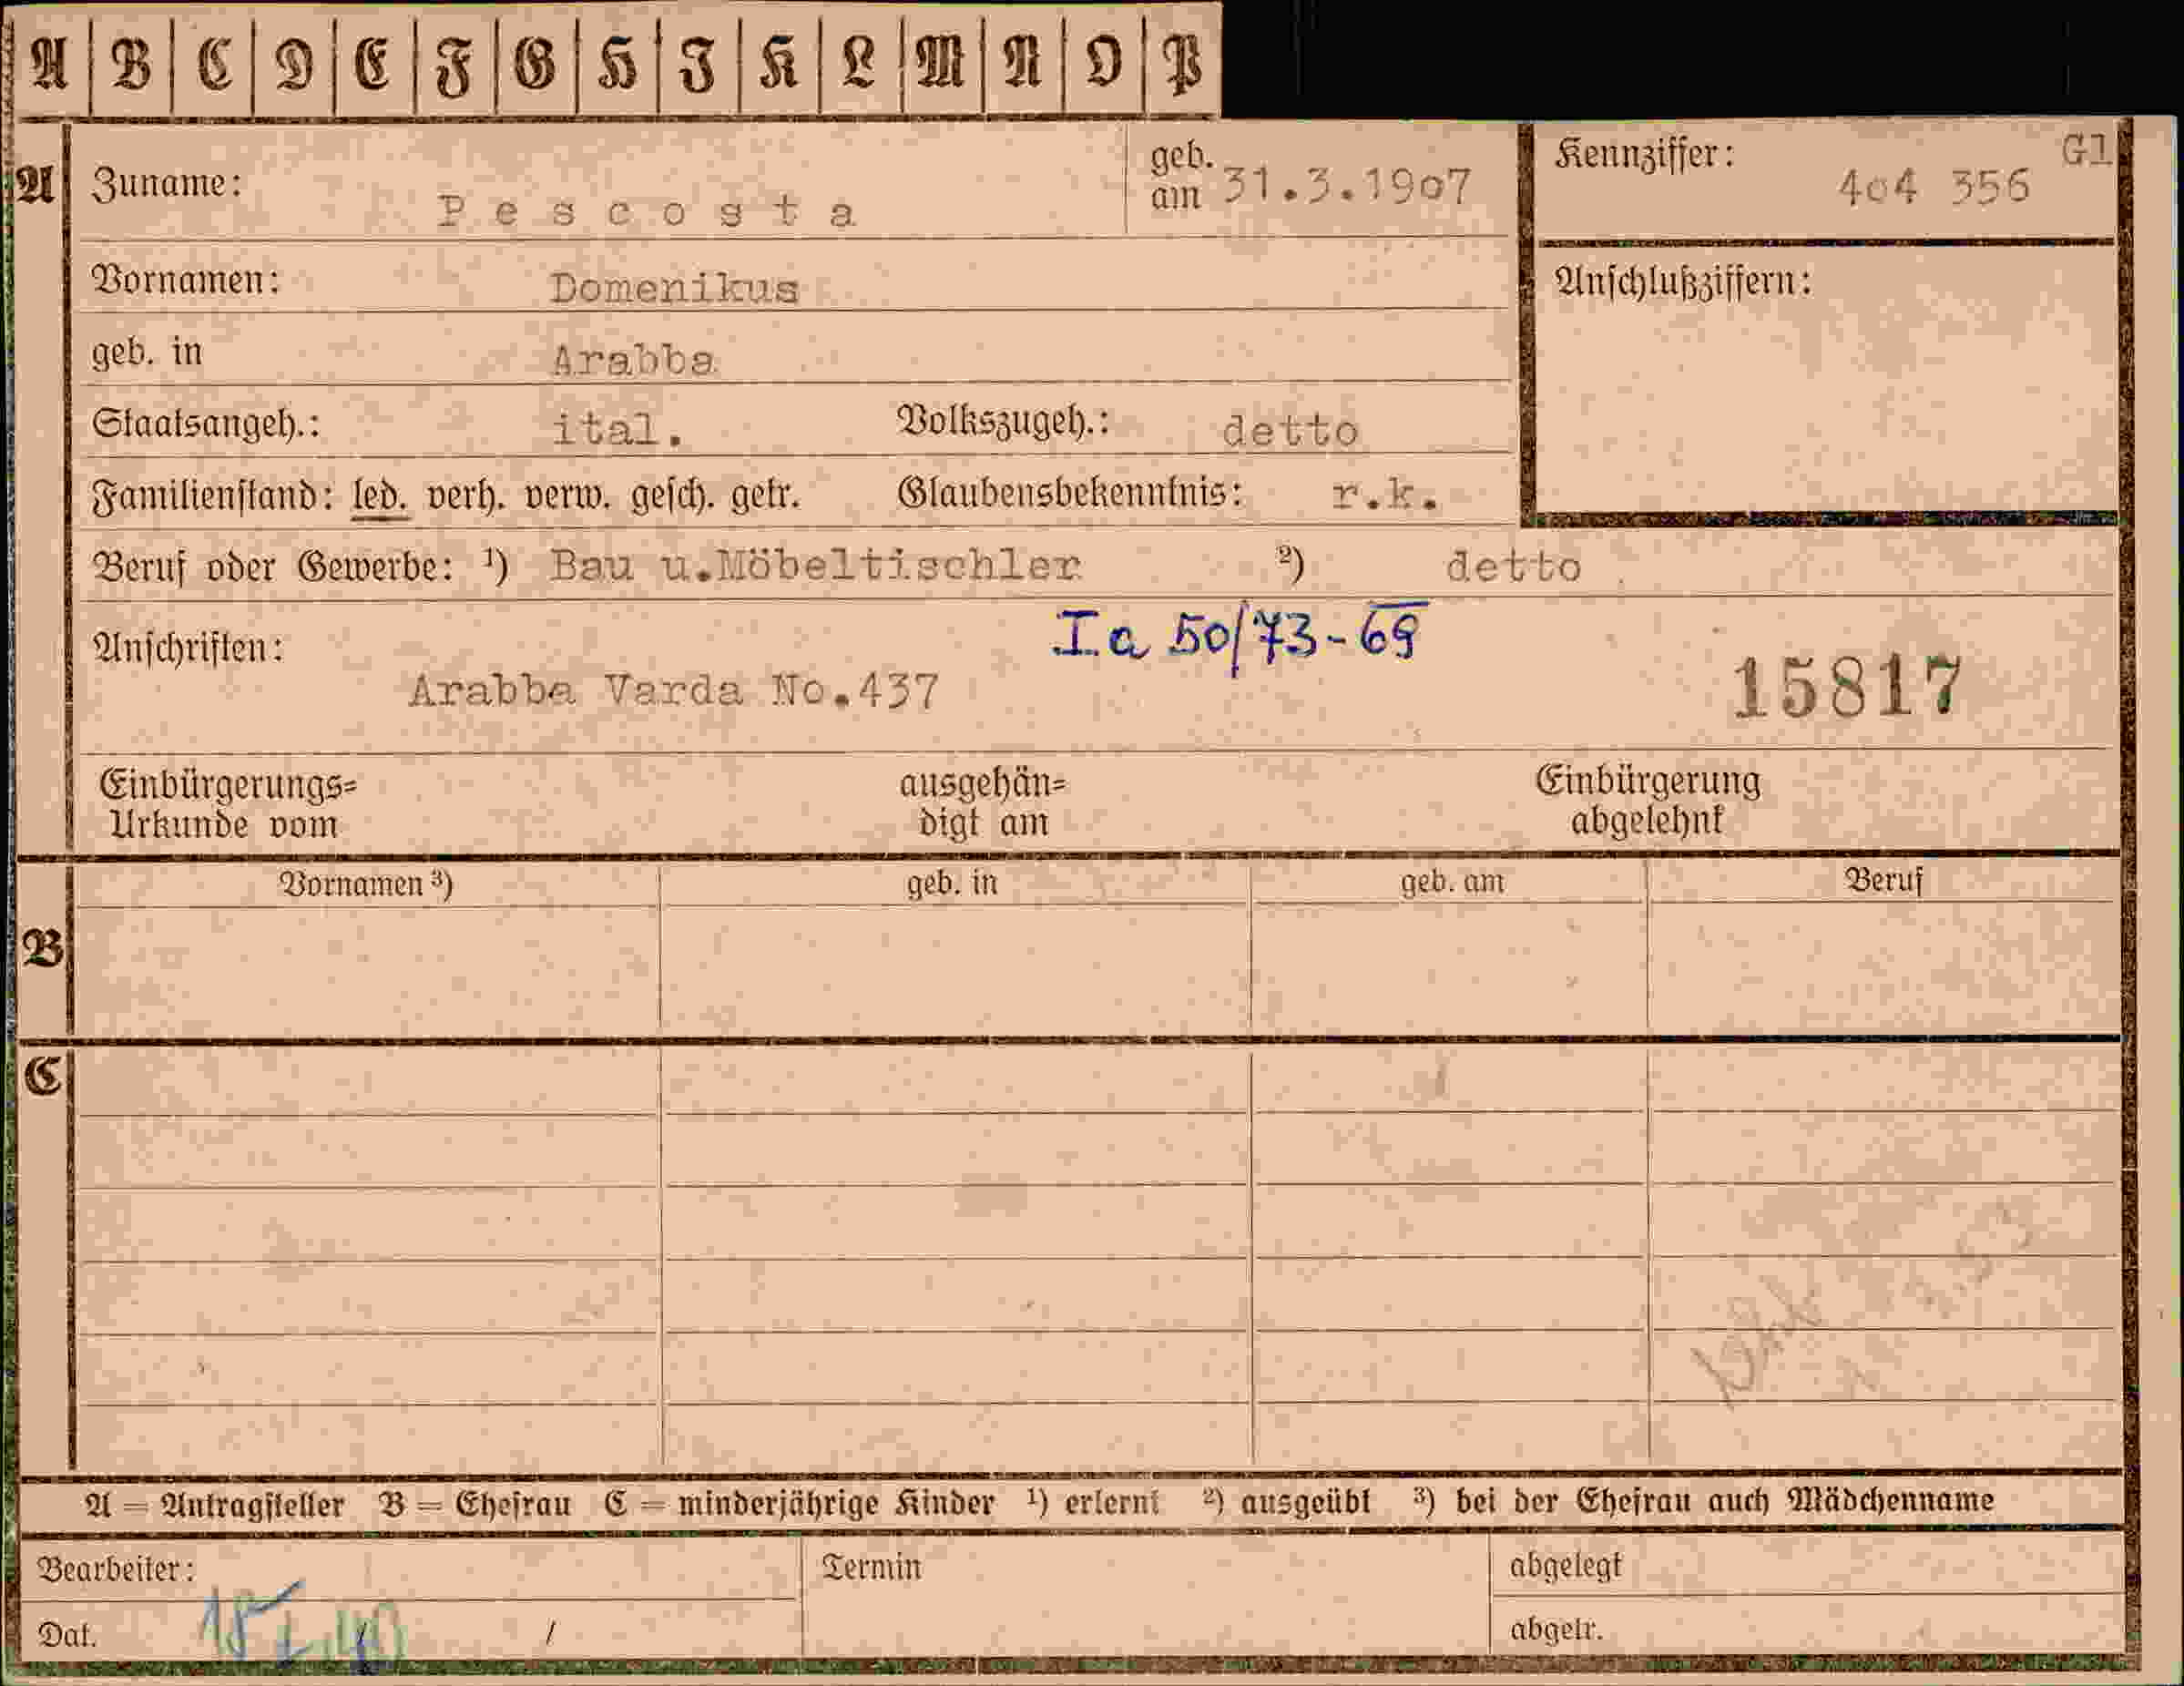 A B C D E F G H I K L M N O P
A Zuname: Pescosta geb. am 31.3.1907 Kennziffer: 404 356 Gl
Vornamen: Domenikus Anschlußziffern:
geb. in Arabba
Staatsangeh.: ital. Volkszugeh.: detto
Familienstand: led. verh. verw. gesch. getr. Glaubensbekenntnis: r.k.
Beruf oder Gewerbe: ¹) Bau u.Möbeltischler ²) detto
Ia 50/73-69
Anschriften:
Arabba Varda No.437 15817
Einbürgerungs= ausgehän= Einbürgerung
Urkunde vom digt am abgelehnt
Vornamen ³) geb. in geb. am Beruf
B
C
A = Antragsteller B = Ehefrau C = minderjährige Kinder ¹) erlernt ²) ausgeübt ³) bei der Ehefrau auch Mädchenname
Bearbeiter: Termin abgelegt
Dat. / / abgetr.